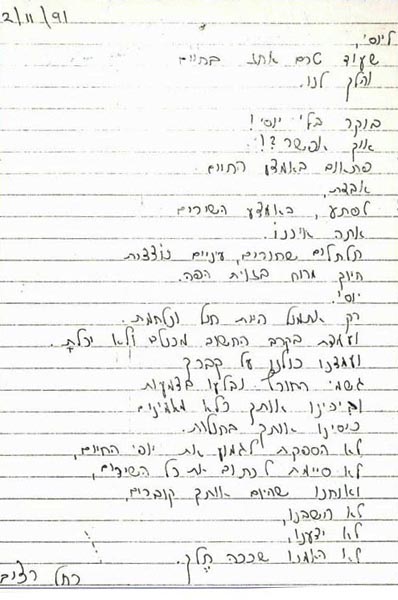 2/11/91
ליוסי,
שעוד טרם אתה בחיים
והלך לנו.
בוקר בלי יוסי!
איך אפשר?!
פתאום באמצע החיים
אבדת,
לפתע, באמצע השירים
אתה איננו.
תלתלים שחורים, עיניים נוצצות
חיוך מרוח בזוית הפה.
יוסי.
רק אתמול היית חזק ונלחמת.
ועמדת בקרב החשוב מכולם ולא יכלת.
ועמדנו כולנו על קברך
גשמי החורף נבלעו בדמעות
וביכינו אותך כלא מאמינים
כיסינו אותך בחולות.
לא הספקת לגמוע את יופי החיים,
לא סיימת לכתוב את כל השירים,
ואנחנו שהיום אותך קוברים,
לא חשבנו,
לא ידענו,
לא האמנו שככה תלך.
רחל